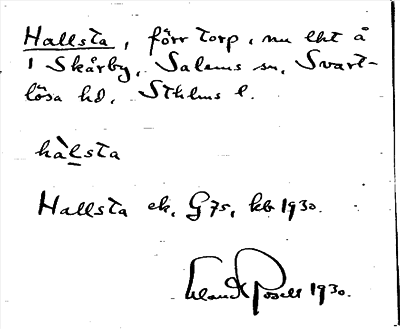 Hallsta, förr torp, nu lht å
1 Skårby, Salems sn, Svart-
lösa hd, Sthlms l.
hàlsta
Hallsta ek. G75, kb 1930.
Erland Rosell 1930.